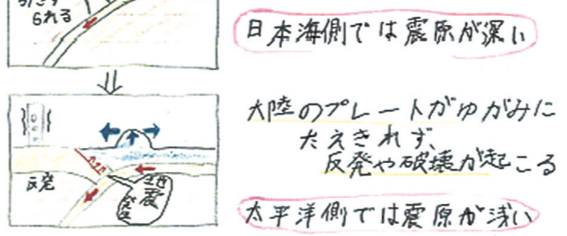 られる
日本海側では震原が深い
大陸のプレートがゆがみに
たえきれず、
反発や破壊が起こる
反発
太平洋側では震原が浅い